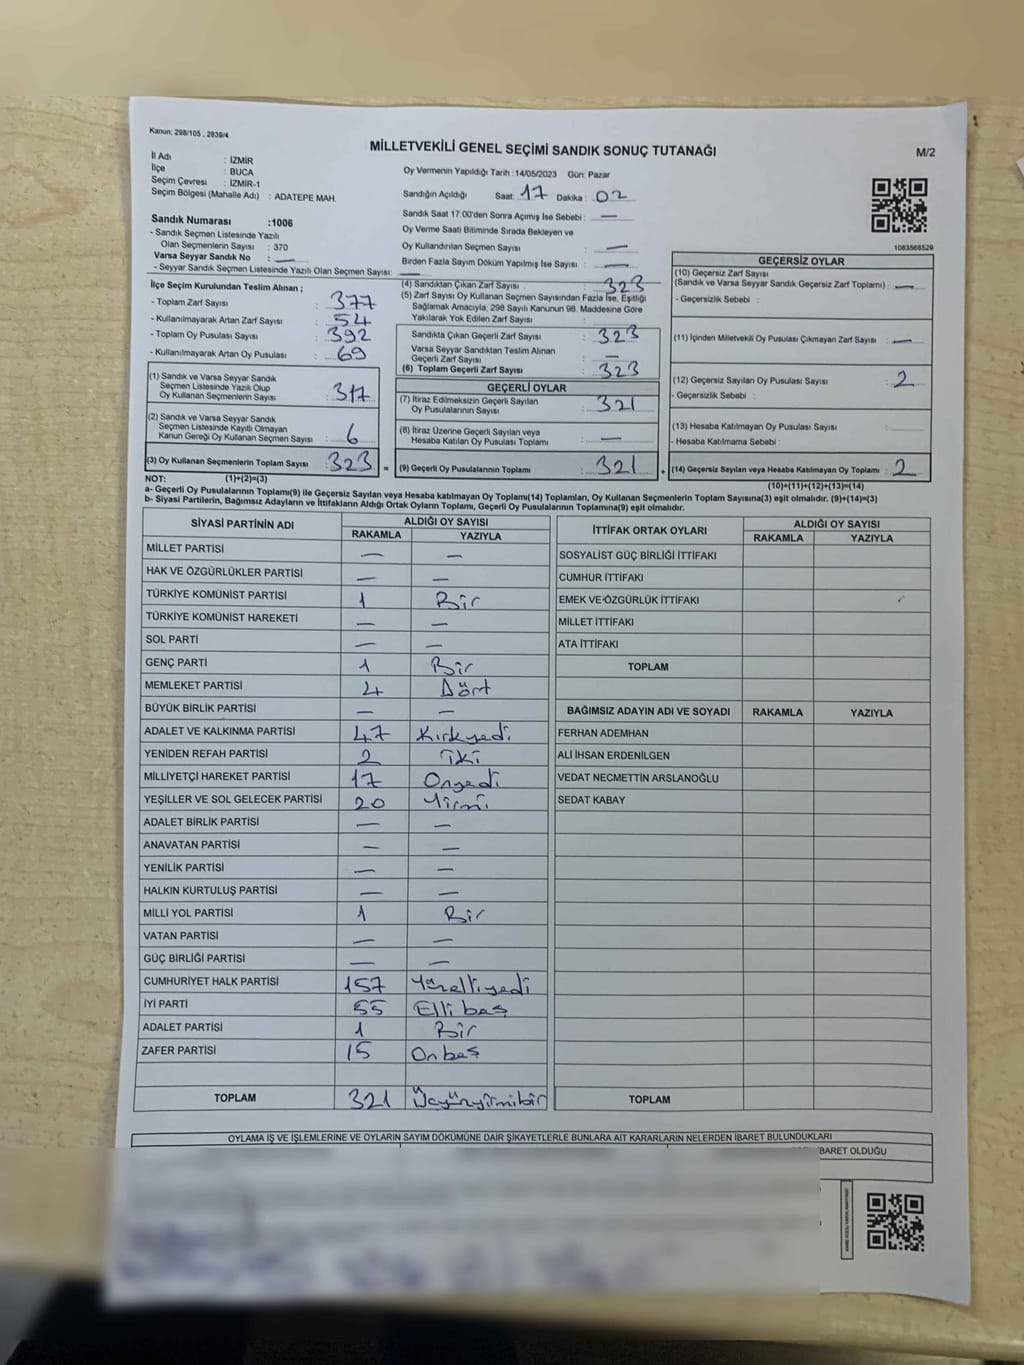 Kanun; 298/105 , 2839/4
MİLLETVEKİLİ GENEL SEÇİMİ SANDIK SONUÇ TUTANAĞI
M/2
İl Adı : İZMİR
İlçe : BUCA
Seçim Çevresi : İZMİR-1
Seçim Bölgesi (Mahalle Adı) : ADATEPE MAH.
Oy Vermenin Yapıldığı Tarih :14/05/2023 Gün: Pazar
Sandığın Açıldığı Saat: 17 Dakika : 02
Sandık Saat 17:00'den Sonra Açımış İse Sebebi : —
Oy Verme Saati Bitiminde Sırada Bekleyen ve
Oy Kullandırılan Seçmen Sayısı : —
Birden Fazla Sayım Döküm Yapılmış İse Sayısı : —
1083568529
Sandık Numarası :1006
- Sandık Seçmen Listesinde Yazılı
Olan Seçmenlerin Sayısı : 370
Varsa Seyyar Sandık No : —
- Seyyar Sandık Seçmen Listesinde Yazılı Olan Seçmen Sayısı: —
İlçe Seçim Kurulundan Teslim Alınan ;
- Toplam Zarf Sayısı : 377
- Kullanılmayarak Artan Zarf Sayısı : 54
- Toplam Oy Pusulası Sayısı : 392
- Kullanılmayarak Artan Oy Pusulası : 69
(1) Sandık ve Varsa Seyyar Sandık
Seçmen Listesinde Yazılı Olup
Oy Kullanan Seçmenlerin Sayısı : 317
(2) Sandık ve Varsa Seyyar Sandık
Seçmen Listesinde Kayıtlı Olmayan
Kanun Gereği Oy Kullanan Seçmen Sayısı : 6
(3) Oy Kullanan Seçmenlerin Toplam Sayısı : 323 =
(4) Sandıktan Çıkan Zarf Sayısı : 323
(5) Zarf Sayısı Oy Kullanan Seçmen Sayısından Fazla İse, Eşitliği
Sağlamak Amacıyla, 298 Sayılı Kanunun 98. Maddesine Göre
Yakılarak Yok Edilen Zarf Sayısı :
Sandıkta Çıkan Geçerli Zarf Sayısı : 323
Varsa Seyyar Sandıktan Teslim Alınan
Geçerli Zarf Sayısı : —
(6) Toplam Geçerli Zarf Sayısı : 323
GEÇERLİ OYLAR
(7) İtiraz Edilmeksizin Geçerli Sayılan
Oy Pusulalarının Sayısı : 321
(8) İtiraz Üzerine Geçerli Sayılan veya
Hesaba Katılan Oy Pusulası Toplamı : —
(9) Geçerli Oy Pusulalarının Toplamı : 321 +
GEÇERSİZ OYLAR
(10) Geçersiz Zarf Sayısı
(Sandık ve Varsa Seyyar Sandık Geçersiz Zarf Toplamı) : —
- Geçersizlik Sebebi :
(11) İçinden Milletvekili Oy Pusulası Çıkmayan Zarf Sayısı : —
(12) Geçersiz Sayılan Oy Pusulası Sayısı : 2
- Geçersizlik Sebebi :
(13) Hesaba Katılmayan Oy Pusulası Sayısı :
- Hesaba Katılmama Sebebi :
(14) Geçersiz Sayılan veya Hesaba Katılmayan Oy Toplamı : 2
NOT: (1)+(2)=(3)
(10)+(11)+(12)+(13)=(14)
a- Geçerli Oy Pusulalarının Toplamı(9) ile Geçersiz Sayılan veya Hesaba katılmayan Oy Toplamı(14) Toplamları, Oy Kullanan Seçmenlerin Toplam Sayısına(3) eşit olmalıdır. (9)+(14)=(3)
b- Siyasi Partilerin, Bağımsız Adayların ve İttifakların Aldığı Ortak Oyların Toplamı, Geçerli Oy Pusulalarının Toplamına(9) eşit olmalıdır.
SİYASİ PARTİNİN ADI ALDIĞI OY SAYISI
RAKAMLA YAZIYLA
MİLLET PARTİSİ — —
HAK VE ÖZGÜRLÜKLER PARTİSİ — —
TÜRKİYE KOMÜNİST PARTİSİ 1 Bir
TÜRKİYE KOMÜNİST HAREKETİ — —
SOL PARTİ — —
GENÇ PARTİ 1 Bir
MEMLEKET PARTİSİ 4 Dört
BÜYÜK BİRLİK PARTİSİ — —
ADALET VE KALKINMA PARTİSİ 47 Kırkyedi
YENİDEN REFAH PARTİSİ 2 iki
MİLLİYETÇİ HAREKET PARTİSİ 17 Onyedi
YEŞİLLER VE SOL GELECEK PARTİSİ 20 Yirmi
ADALET BİRLİK PARTİSİ — —
ANAVATAN PARTİSİ — —
YENİLİK PARTİSİ — —
HALKIN KURTULUŞ PARTİSİ — —
MİLLİ YOL PARTİSİ 1 Bir
VATAN PARTİSİ — —
GÜÇ BİRLİĞİ PARTİSİ — —
CUMHURİYET HALK PARTİSİ 157 Yüzelliyedi
İYİ PARTİ 55 Elli beş
ADALET PARTİSİ 1 Bir
ZAFER PARTİSİ 15 On beş
TOPLAM 321 Üçyüzyirmibir
İTTİFAK ORTAK OYLARI ALDIĞI OY SAYISI
RAKAMLA YAZIYLA
SOSYALİST GÜÇ BİRLİĞİ İTTİFAKI
CUMHUR İTTİFAKI
EMEK VE ÖZGÜRLÜK İTTİFAKI
MİLLET İTTİFAKI
ATA İTTİFAKI
TOPLAM
BAĞIMSIZ ADAYIN ADI VE SOYADI RAKAMLA YAZIYLA
FERHAN ADEMHAN
ALİ İHSAN ERDENİLGEN
VEDAT NECMETTİN ARSLANOĞLU
SEDAT KABAY
TOPLAM
OYLAMA İŞ VE İŞLEMLERİNE VE OYLARIN SAYIM DÖKÜMÜNE DAİR ŞİKAYETLERLE BUNLARA AİT KARARLARIN NELERDEN İBARET BULUNDUKLARI
BARET OLDUĞU